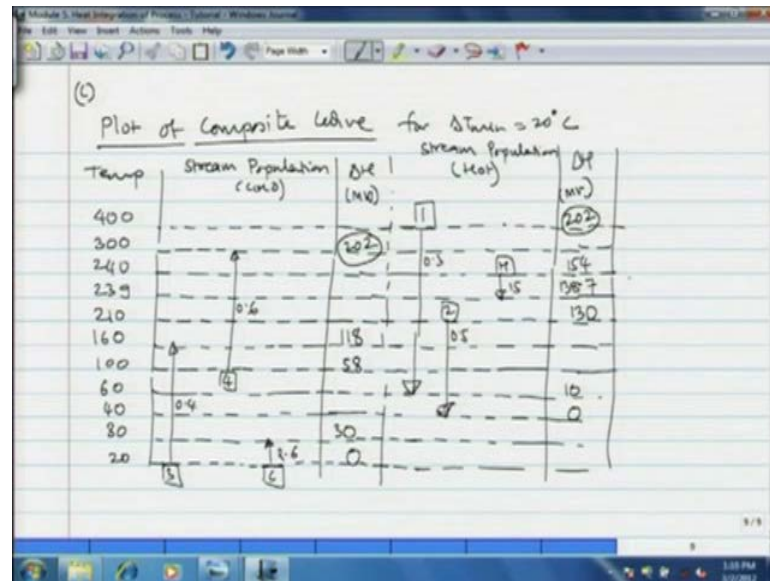 Module 5. Heat Integration of Process - Tutorial - Windows Journal
File Edit View Insert Actions Tools Help
Page Width
(C)
Plot of Composite Curve for ΔTmin = 20°C
Temp Stream Population (Cold) ΔH (MW) Stream Population (Hot) ΔH (MW)
400 1 202
300 202
240 0.6 0.3 H 154
239 15 138.7
210 2 130
160 118 0.5
100 58
60 4 10
40 0.4 0
80 30
20 3 C 0
9/9
9
3:03 PM